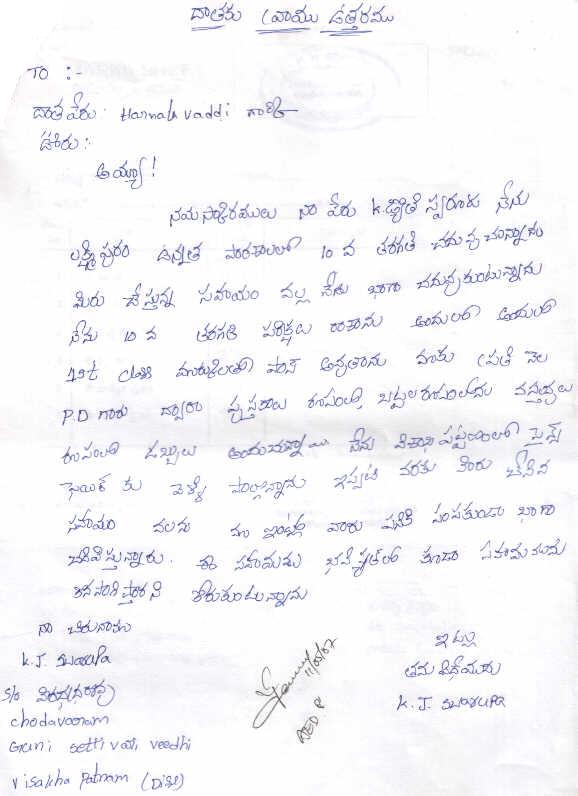 దాతకు వ్రాయు ఉత్తరము
TO :-
దాత పేరు: Harnath vaddi గారికి
ఊరు:-
అయ్యా!
నమస్కారములు నా పేరు K. జ్యోతి స్వరూకు నేను
లక్ష్మీపురం ఉన్నత పాఠశాలలో 10 వ తరగతి చదువుచున్నాను
మీరు చేస్తున్న సహాయం వల్ల నేను బాగా చదువుకుంటున్నాను
నేను 10 వ తరగతి పరీక్షలు రాశాను అందులో అందులో
1st class మార్కులతో పాస్ అవుతాను నాకు ప్రతి నెల
P.D గారు ద్వారా పుస్తకాలు రూపంలో, బట్టల రూపంలోను వస్తువులు
రూపంలో డబ్బులు అందుచున్నాయి నేను విశాఖపట్టణంలో
కు వెళ్ళి ఇప్పటి వరకు మీరు చేసిన
సహాయం వలన మా ఇంట్లో వారు పనికి పంపకుండా బాగా
చదివిస్తున్నారు. ఈ సహాయము భవిష్యత్ లో కూడా సహాయమును
కొనసాగిస్తారని కోరుకుంటున్నాను
నా చిరునామా
K. J. Swarupa
S/o
chodavaram
Gruni setti vati veedhi
visakha patnam (Dist)
ఇట్లు
తమ విధేయుడు
K. J. SWARUPA
11/05/07